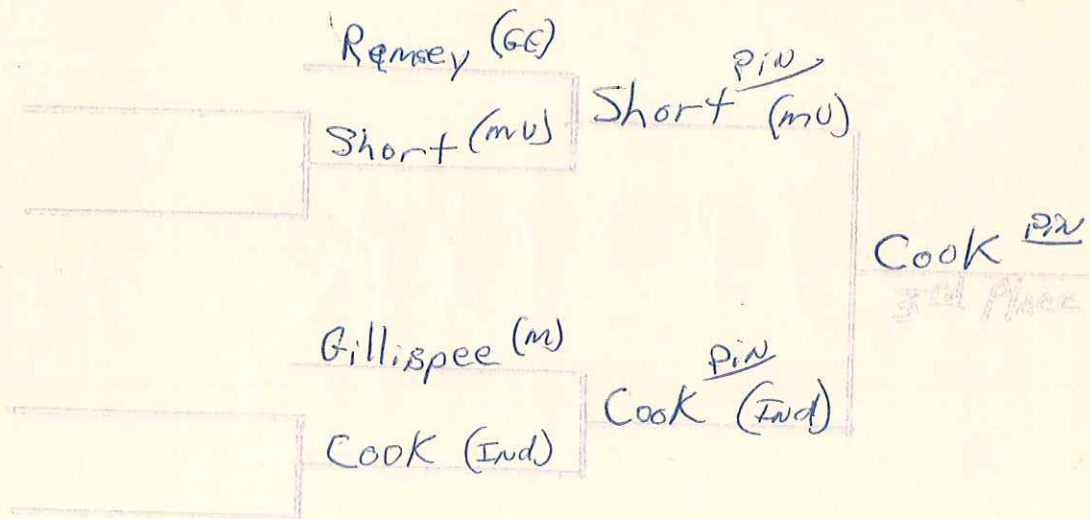 Ramsey (GC)
Short (MU)
Short PIN (MU)
Gillispee (M)
Cook (Ind)
Cook PIN (Ind)
Cook PIN
3rd Place